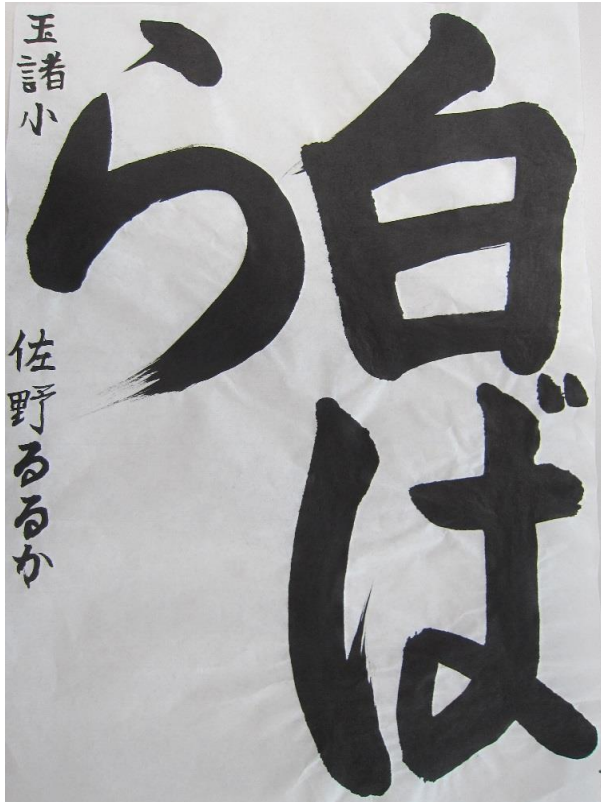 白ば
ら
玉諸小
佐野るるか